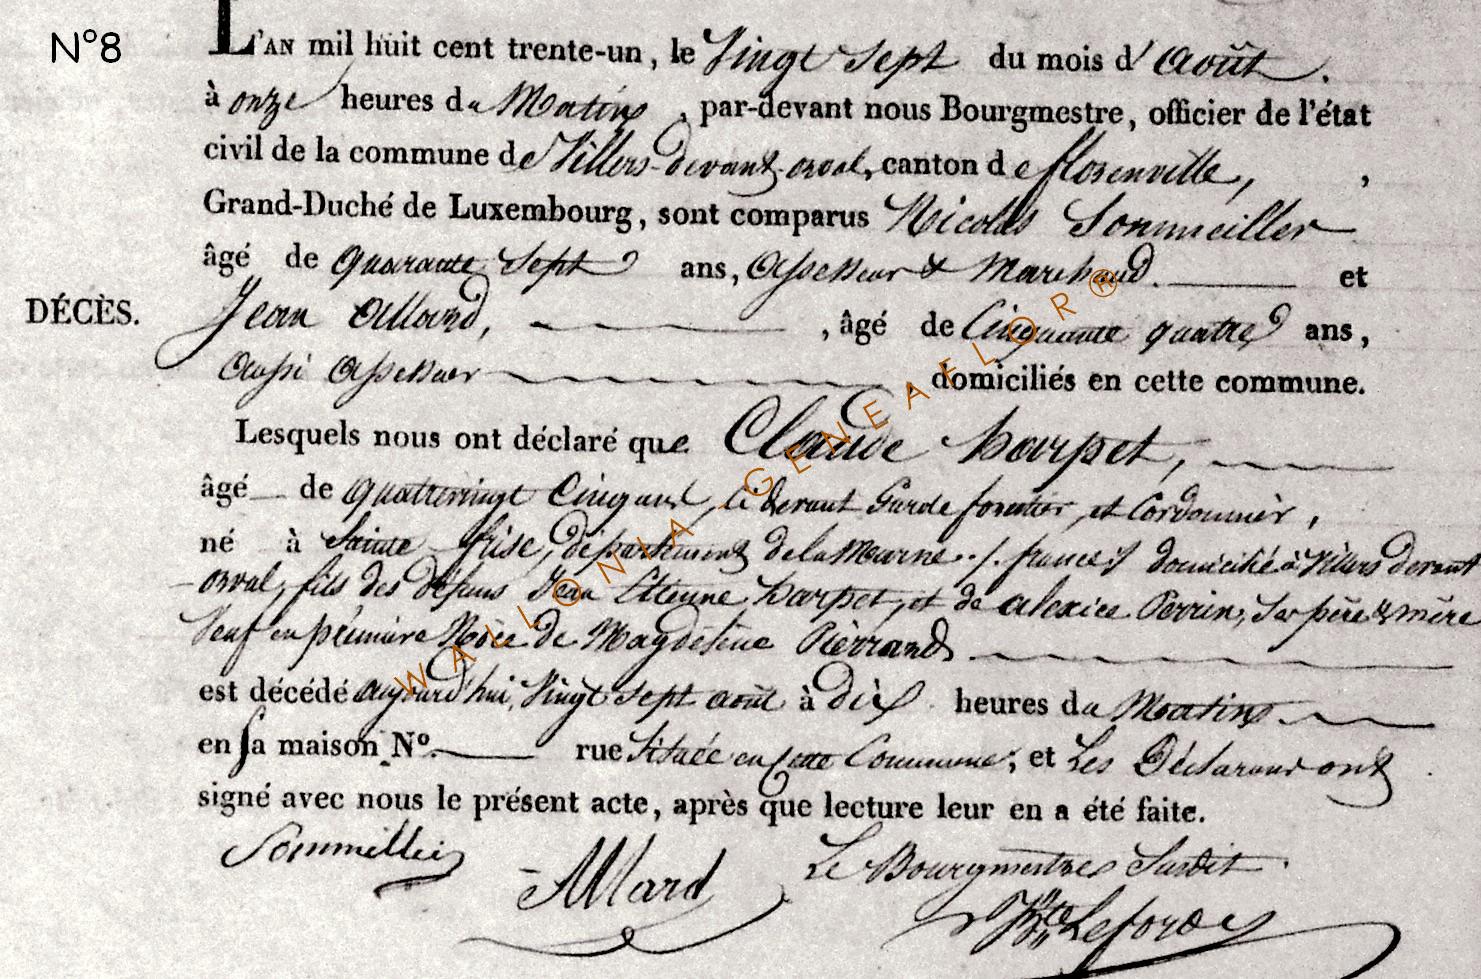 N°8
L'AN mil huit cent trente-un, le Vingt Sept du mois d'Août.
à onze heures du Matins, par-devant nous Bourgmestre, officier de l'état
civil de la commune de Villers-devant-orval, canton de florenville,
Grand-Duché de Luxembourg, sont comparus Nicolas Sommeiller
âgé de quarante Sept ans, Assesseur & Marchand. et
DÉCÈS.
Jean Allard, , âgé de Cinquante quatre ans,
aussi Assesseur domiciliés en cette commune.
Lesquels nous ont déclaré que Claude harpet,
âgé de quatrevingt Cinq ans, Ci devant Garde forestier, et Cordonnier,
né à Sainte frise, département de la Marne ../. france :/ domicilié à Villers devant
-orval, fils des défunts Jean Etienne harpet, et de alexice Perrin, Ses père & mère
Veuf en première Noce de Magdeleine Pièrrard
est décédé aujourd'hui, Vingt Sept août à dix heures du Matins
en sa maison N°. rue Située en Cette Commune, et Les Déclarans ont
signé avec nous le présent acte, après que lecture leur en a été faite.
Sommeillier
Allard
Le Bourgmestre Susdit.
WALLONIA - GENEAFLOR®